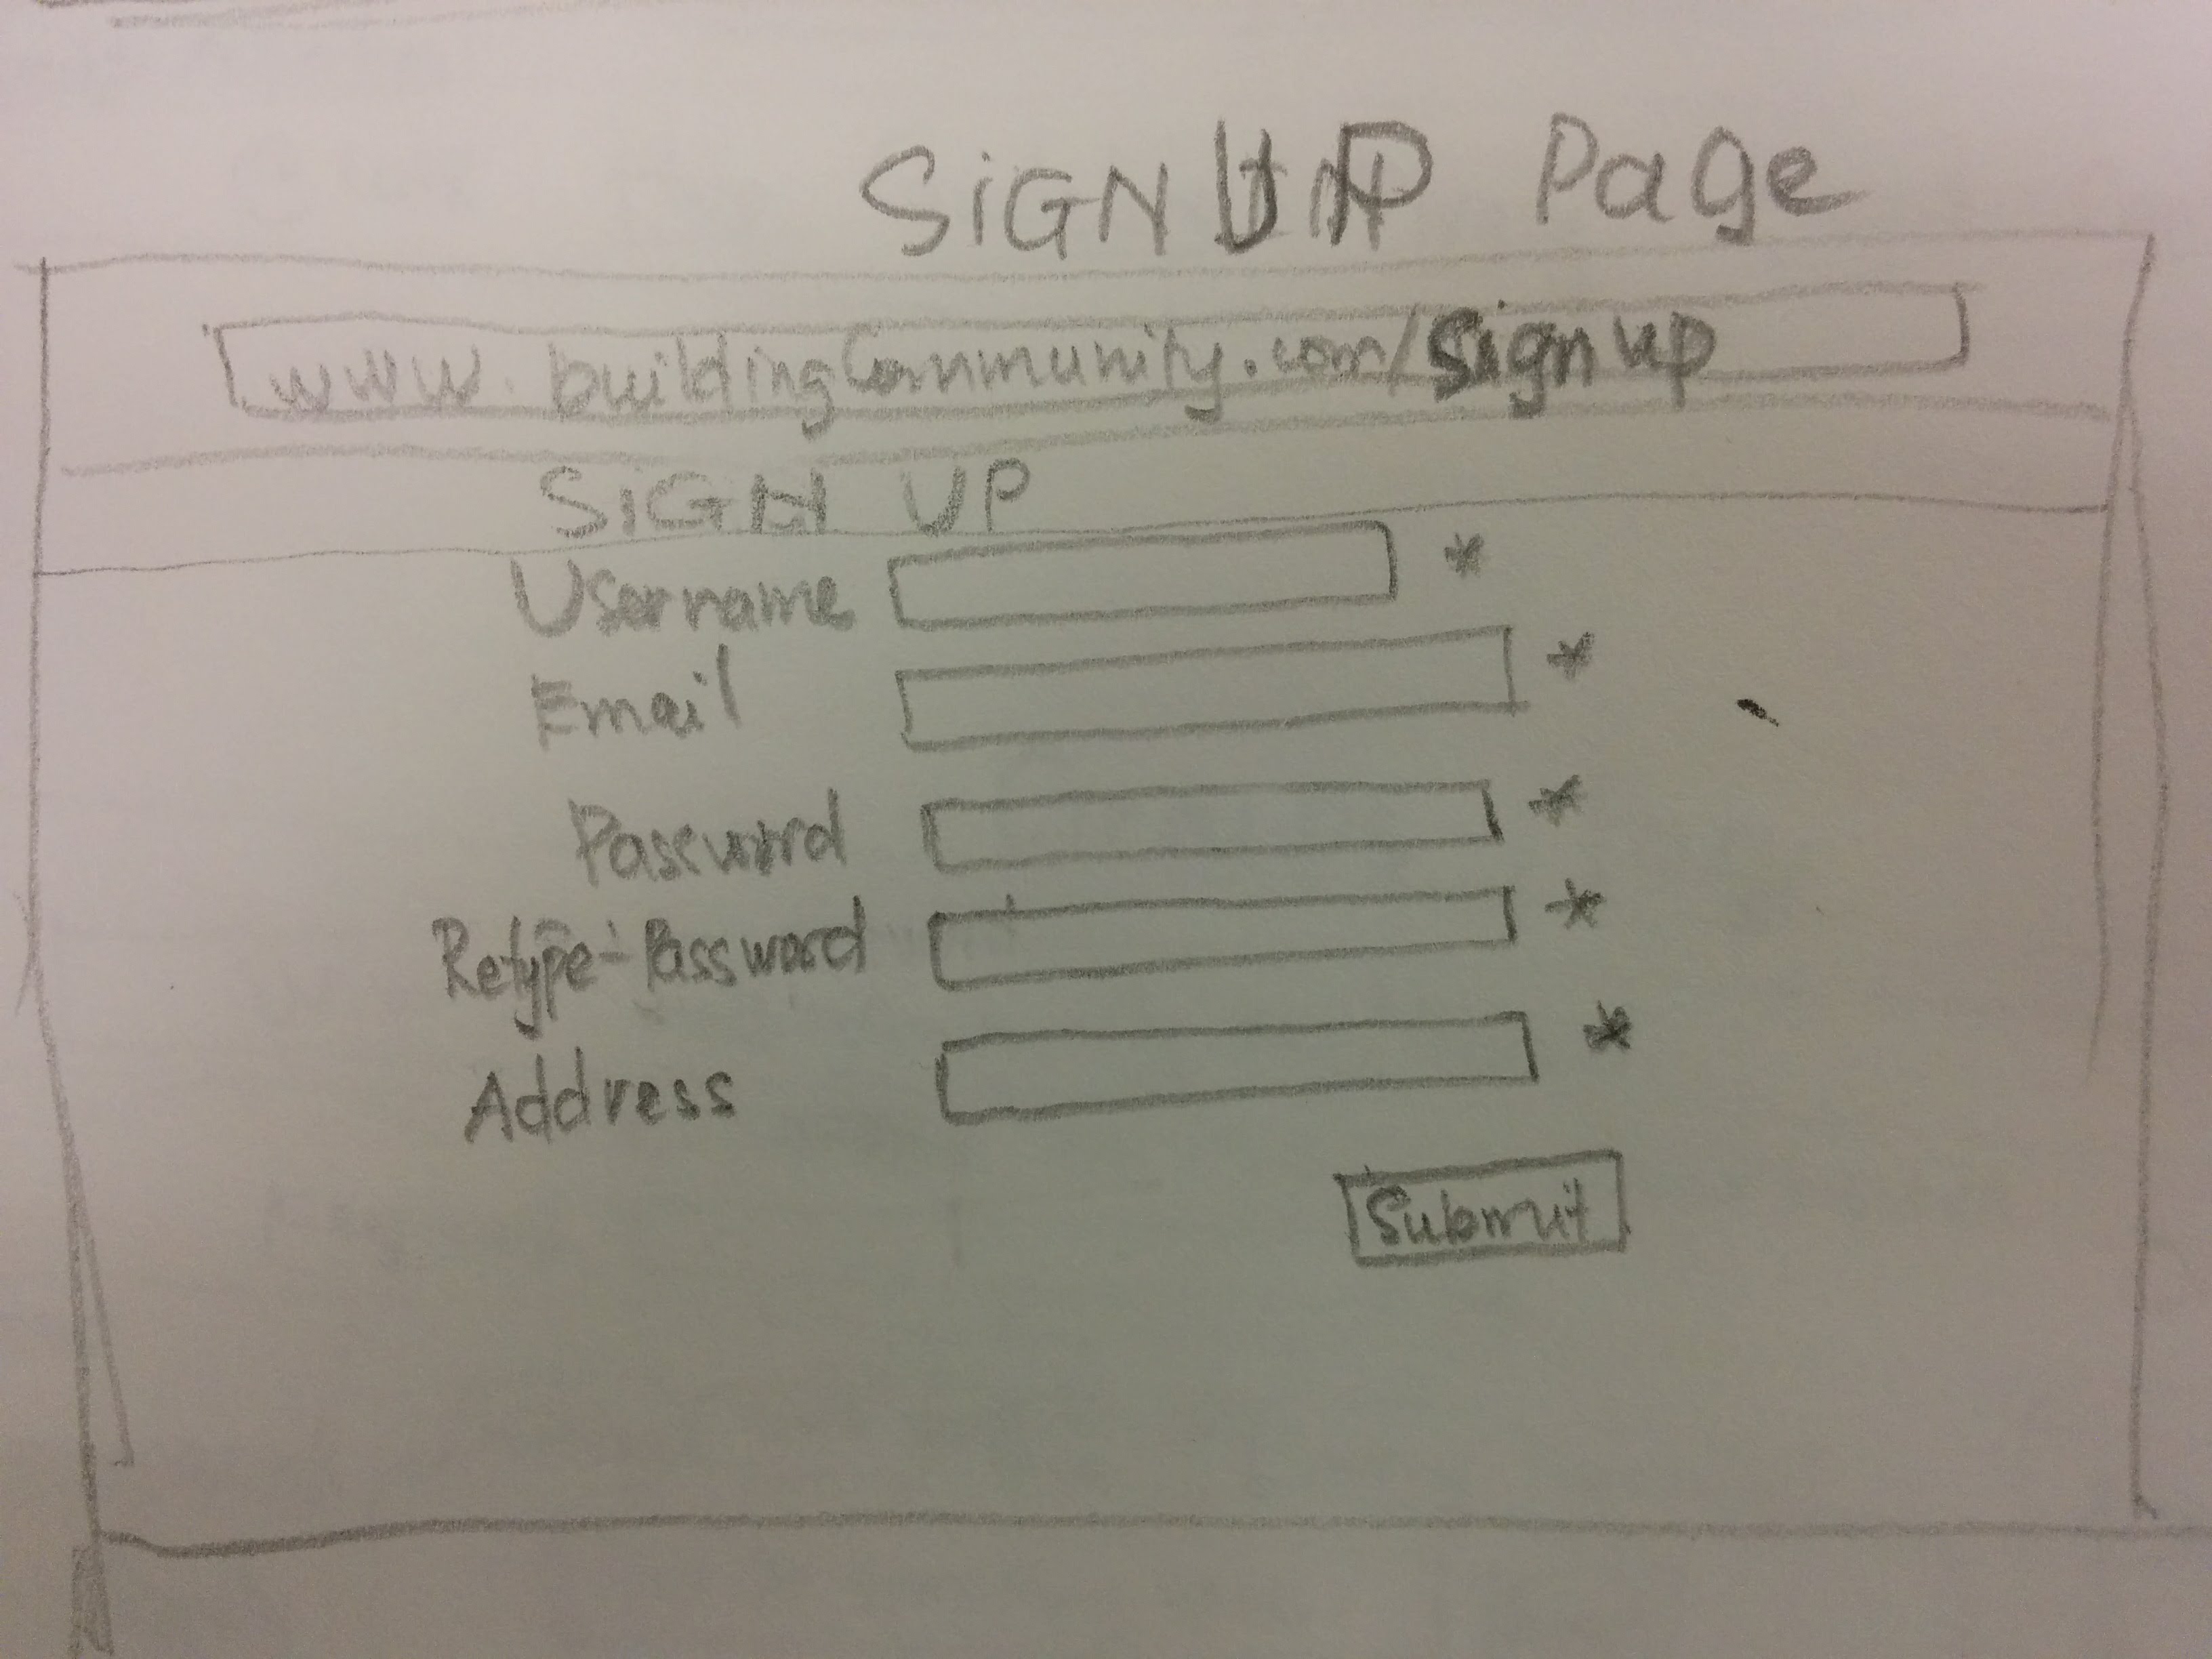 SiGN UP Page
www.buildingCommunity.com/Signup
SiGN UP
Username *
Email *
Password *
Retype-Password *
Address *
Submit